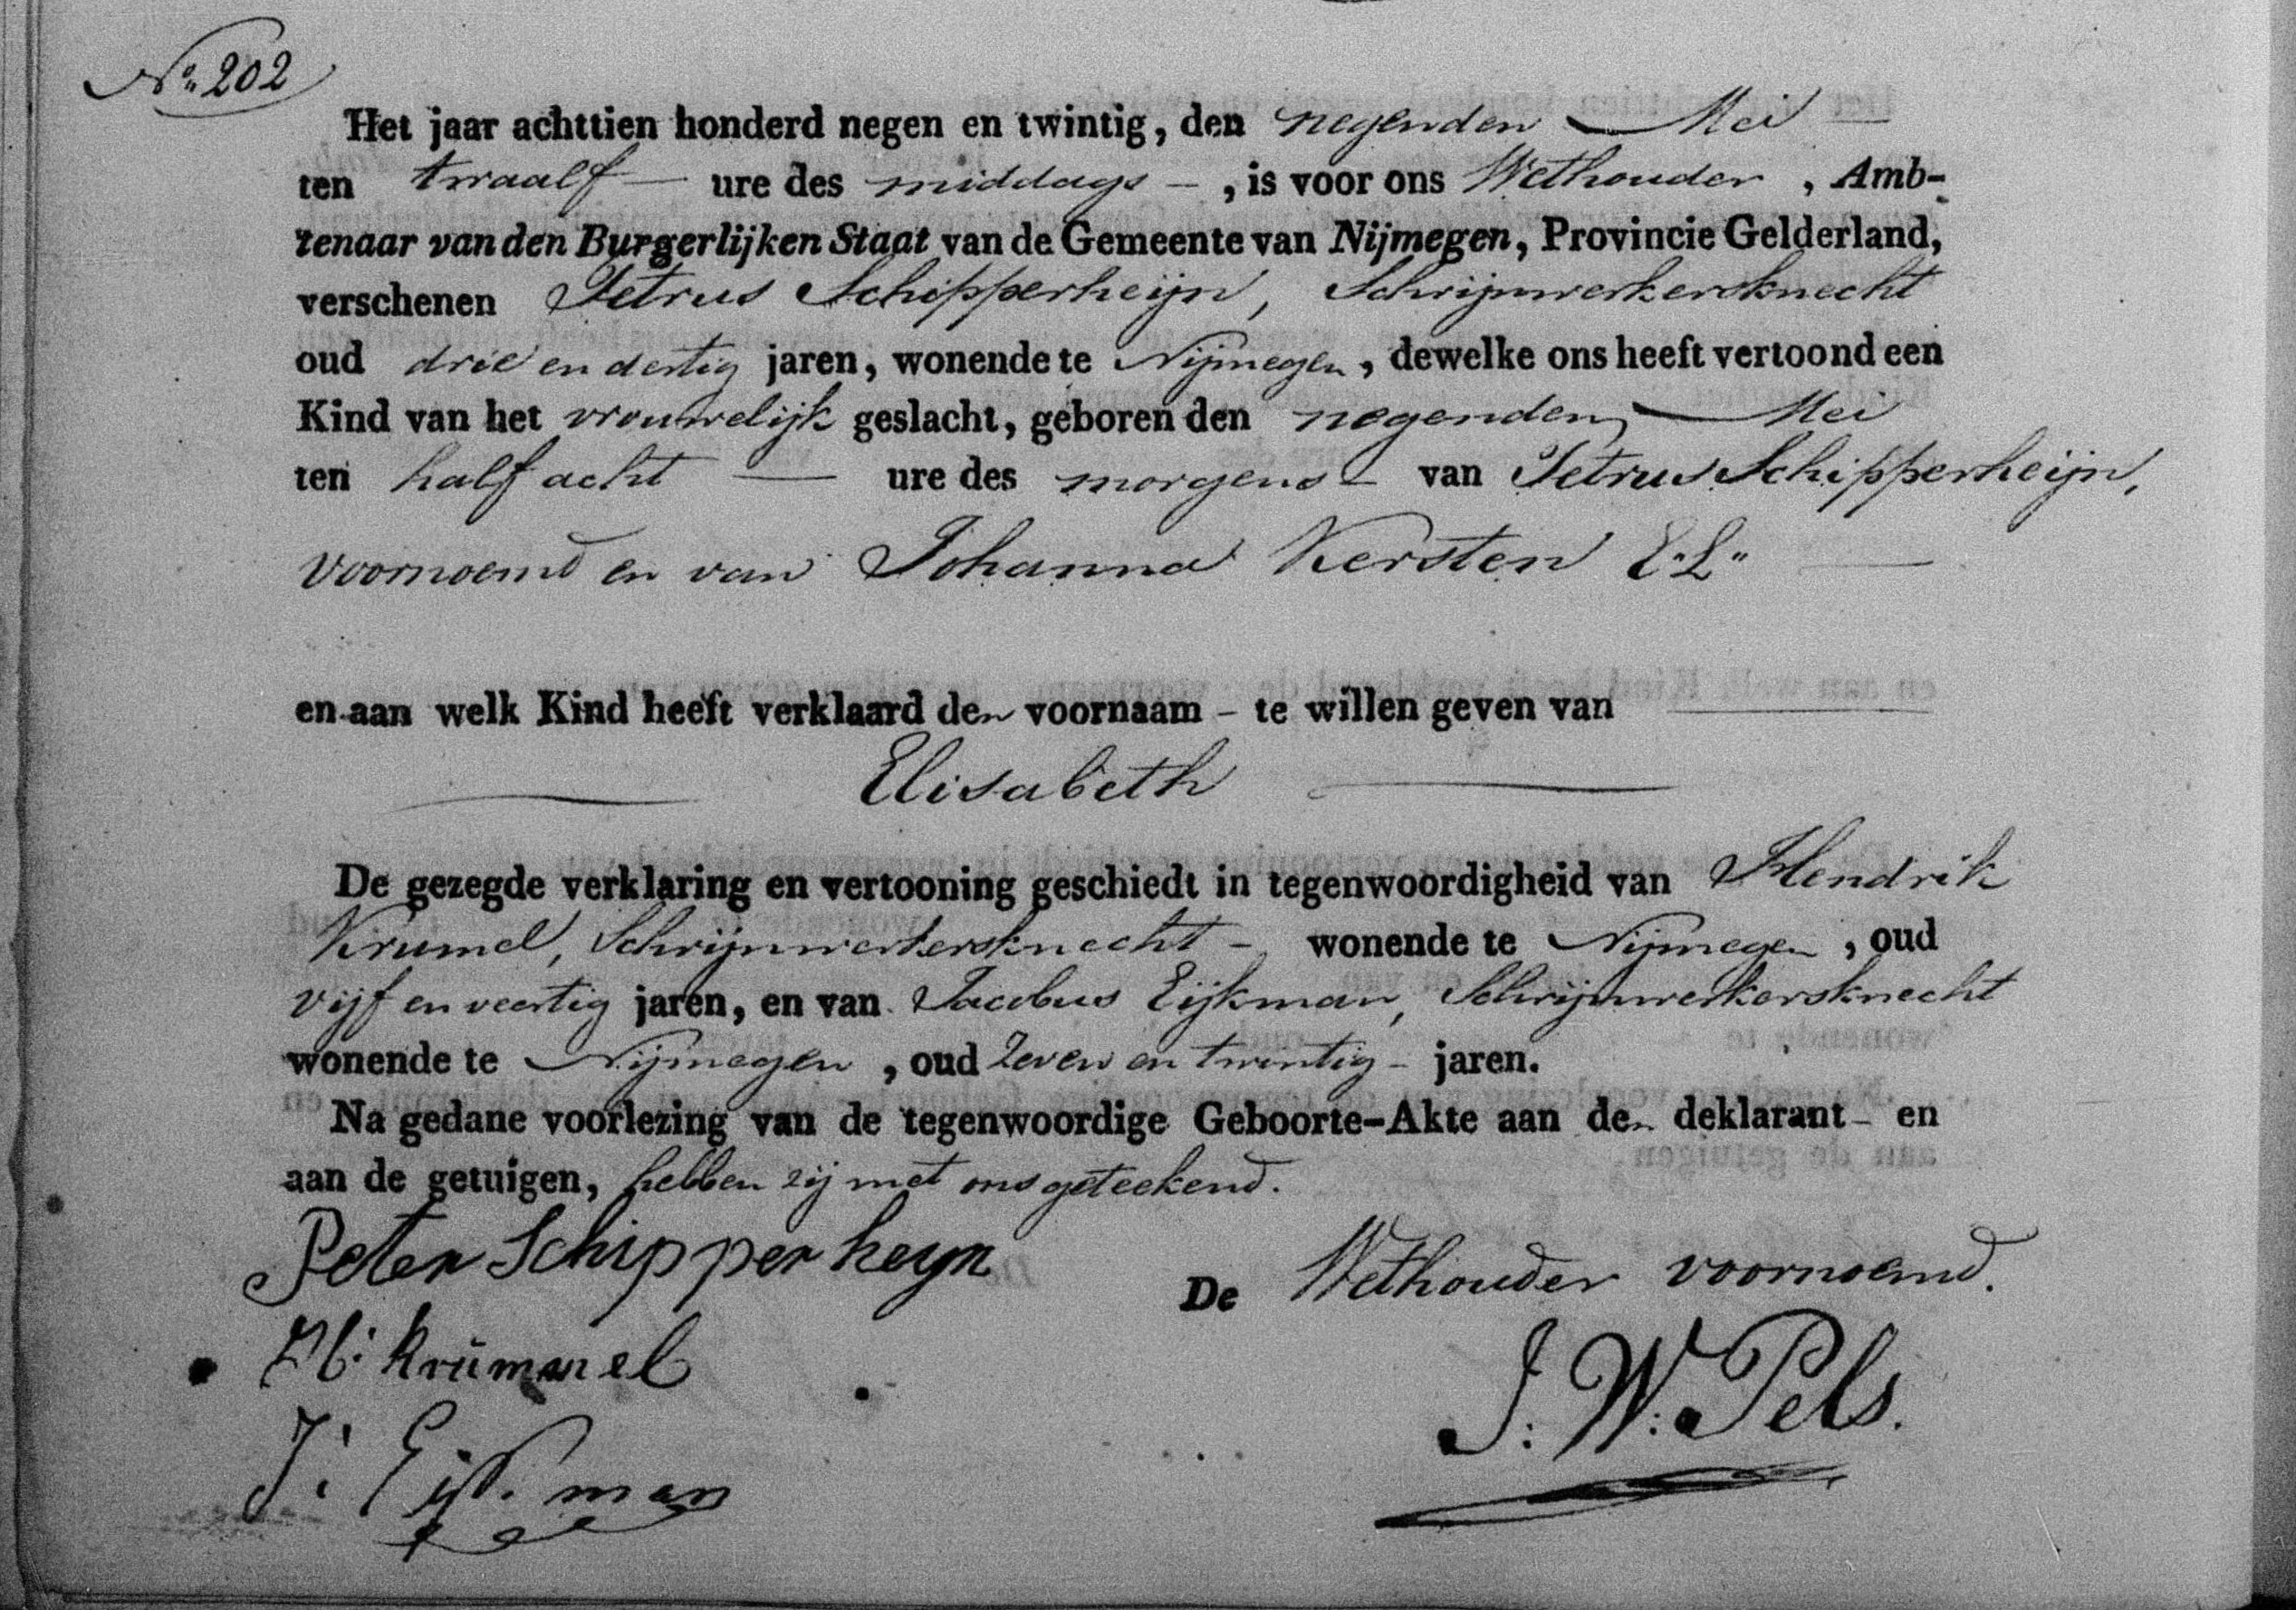 No. 202
Het jaar achttien honderd negen en twintig, den negenden Mei
ten twaalf ure des middags, is voor ons Wethouder, Amb-
tenaar van den Burgerlijken Staat van de Gemeente van Nijmegen, Provincie Gelderland,
verschenen Petrus Schipperheijn, Schrijnwerkersknecht
oud drie en dertig jaren, wonende te Nijmegen, dewelke ons heeft vertoond een
Kind van het vrouwelijk geslacht, geboren den negenden Mei
ten half acht ure des morgens van Petrus Schipperheijn,
voornoemd en van Johanna Kersten E.L.
en aan welk Kind heeft verklaard den voornaam - te willen geven van
Elisabeth
De gezegde verklaring en vertooning geschiedt in tegenwoordigheid van Hendrik
Krumel, Schrijnwerkersknecht - wonende te Nijmegen, oud
vijf en veertig jaren, en van Jacobus Eijkman, Schrijnwerkersknecht
wonende te Nijmegen, oud zeven en twintig - jaren.
Na gedane voorlezing van de tegenwoordige Geboorte-Akte aan den deklarant - en
aan de getuigen, hebben zij met ons geteekend.
Peter Schipperheyn
De Wethouder voornoemd.
H: Krümmel
J: W: Pels.
J: Eijkman